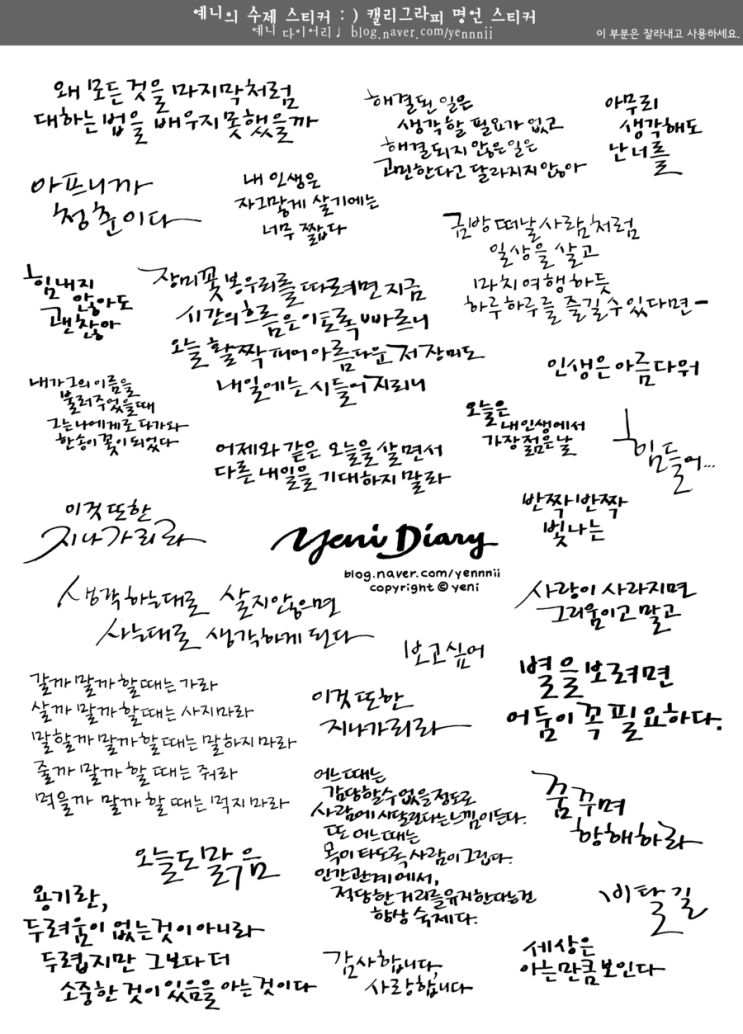 예니의 수제 스티커 : ) 캘리그라피 명언 스티커
예니 다이어리♩ blog.naver.com/yennnii
이 부분은 잘라내고 사용하세요.
왜 모든 것을 마지막처럼
대하는 법을 배우지 못했을까
해결된 일은
생각할 필요가 없고
해결되지 않은 일은
고민한다고 달라지지 않아
아무리
생각해도
난 너를
아프니까
청춘이다
내 인생은
자그맣게 살기에는
너무 짧다
금방 떠날 사람처럼
일상을 살고
마치 여행하듯
하루하루를 즐길 수 있다면-
힘내지
않아도
괜찮아
장미꽃 봉우리를 따려면 지금
시간의 흐름은 이토록 빠르니
오늘 활짝 피어 아름다운 저 장미도
내일에는 시들어 지리니
인생은 아름다워
내가 그의 이름을
불러주었을 때
그는 나에게로 다가와
한송이 꽃이 되었다
오늘은
내 인생에서
가장 젊은 날
힘들어...
어제와 같은 오늘을 살면서
다른 내일을 기대하지 말라
반짝반짝
빛나는
이것 또한
지나가리라
Yeni Diary
blog.naver.com/yennnii
copyright © yeni
생각하는대로 살지않으면
사는대로 생각하게 된다
사랑이 사라지면
그리움이고 말고
보고싶어
별을 보려면
어둠이 꼭 필요하다.
갈까 말까 할 때는 가라
살까 말까 할 때는 사지마라
말할까 말까 할 때는 말하지 마라
줄까 말까 할 때는 줘라
먹을까 말까 할 때는 먹지 마라
이것 또한
지나가리라
어느 때는
감당할 수 없을 정도로
사람에 시달린다는 느낌이 든다.
또 어느 때는
목이 타도록 사람이 그립다.
인간관계에서,
적당한 거리를 유지한다는건
항상 숙제다.
꿈꾸며
항해하라
오늘도 맑음
용기란,
두려움이 없는 것이 아니라
두렵지만 그보다 더
소중한 것이 있음을 아는 것이다
비탈길
감사합니다,
사랑합니다
세상은
아는만큼 보인다